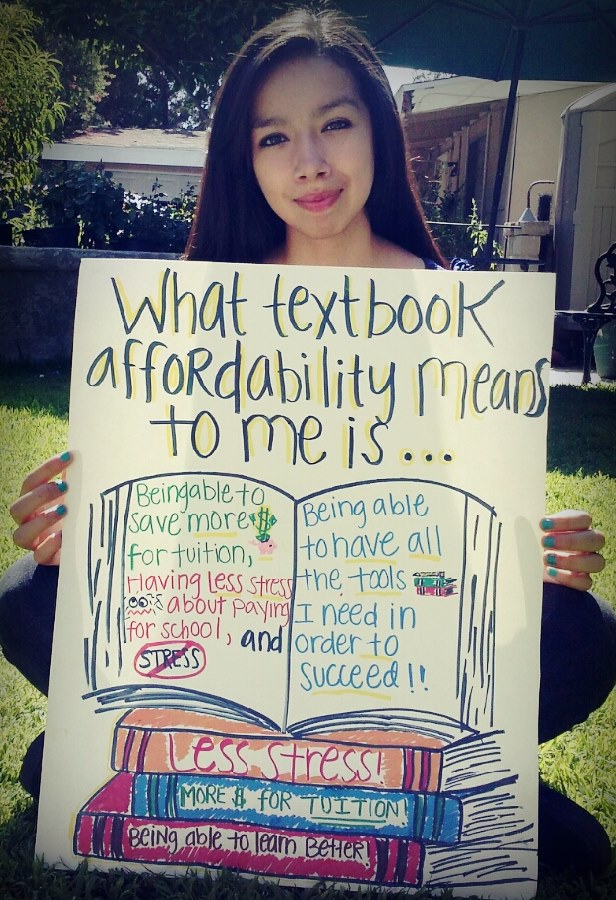 What textbook
affordability means
to me is ...
Being able to
save more
for tuition,
Having less stress
about paying
for school, and
STRESS
Being able
to have all
the tools
I need in
order to
succeed!!
Less stress!
MORE $ FOR TUITION!
Being able to learn Better!